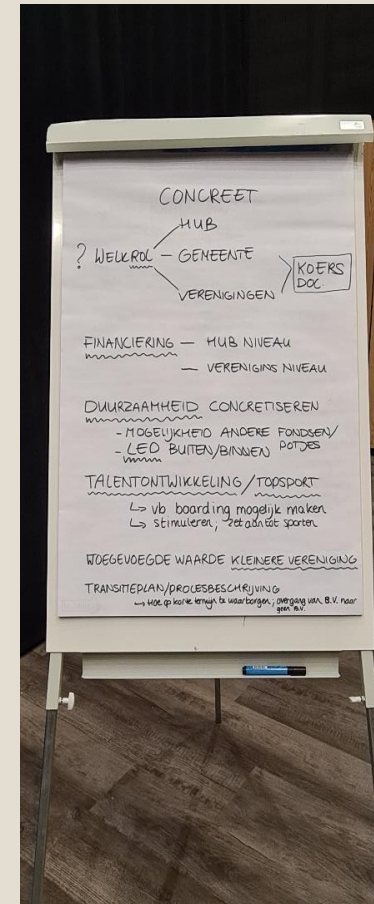 CONCREET
HUB
? WELKE ROL — GEMEENTE
VERENIGINGEN
KOERS
DOC.
FINANCIERING — HUB NIVEAU
— VERENIGINS NIVEAU
DUURZAAMHEID CONCRETISEREN
- MOGELIJKHEID ANDERE FONDSEN/
POTJES
- LED BUITEN/BINNEN
TALENTONTWIKKELING/TOPSPORT
↳ vb boarding mogelijk maken
↳ stimuleren; zet aan tot sporten
TOEGEVOEGDE WAARDE KLEINERE VERENIGING
TRANSITIEPLAN/PROCESBESCHRIJVING
↳ Hoe op korte termijn te waarborgen; overgang van B.V. naar
geen B.V.